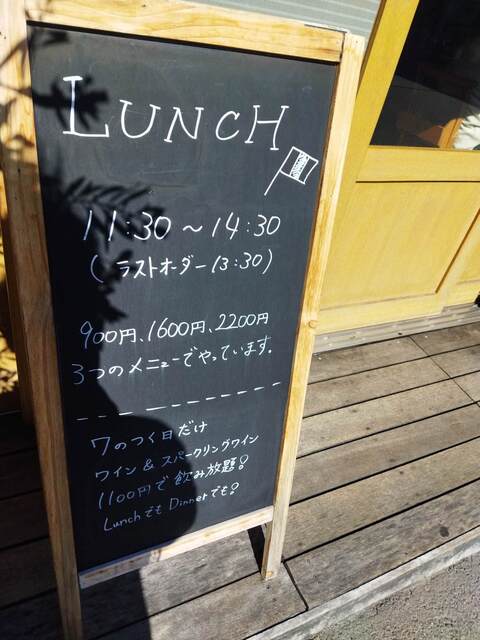 LUNCH
11:30～14:30
(ラストオーダー13:30)
900円、1600円、2200円
3つのメニューでやっています。
7のつく日だけ
ワイン&スパークリングワイン
1100円で飲み放題!
LunchでもDinnerでも!